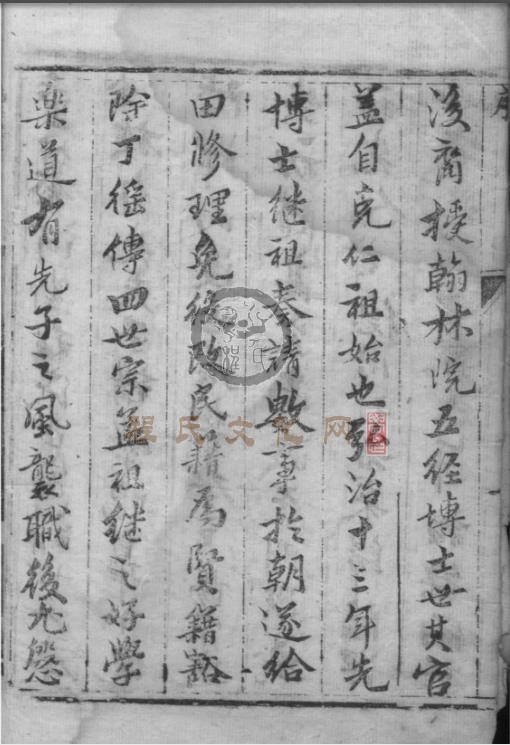 序
後裔授翰林院五经博士世其官
盖自克仁祖始也弘治十三年先
博士继祖奏請數事於朝遂给
田修理免役改民籍為賢籍豁
除丁徭傳四世宗孟祖继之好學
楽道有先子之風襲職後尤慇
程氏文化网